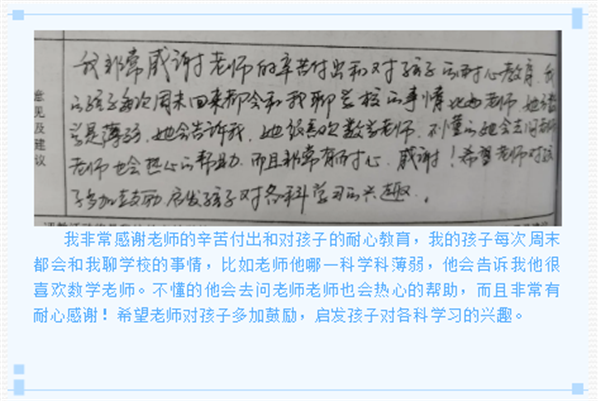 我非常感谢老师的辛苦付出和对孩子的耐心教育，我
的孩子每次周末回来都会和我聊学校的事情比如老师，她
数学是薄弱，她会告诉我，她很喜欢数学老师，不懂的她会去问老师
老师也会热心的帮助，而且非常有耐心，感谢！希望老师对孩
子多加鼓励，启发孩子对各科学习的兴趣。
意见及建议
我非常感谢老师的辛苦付出和对孩子的耐心教育，我的孩子每次周末
都会和我聊学校的事情，比如老师他哪一科学科薄弱，他会告诉我他很
喜欢数学老师。不懂的他会去问老师老师也会热心的帮助，而且非常有
耐心感谢！希望老师对孩子多加鼓励，启发孩子对各科学习的兴趣。